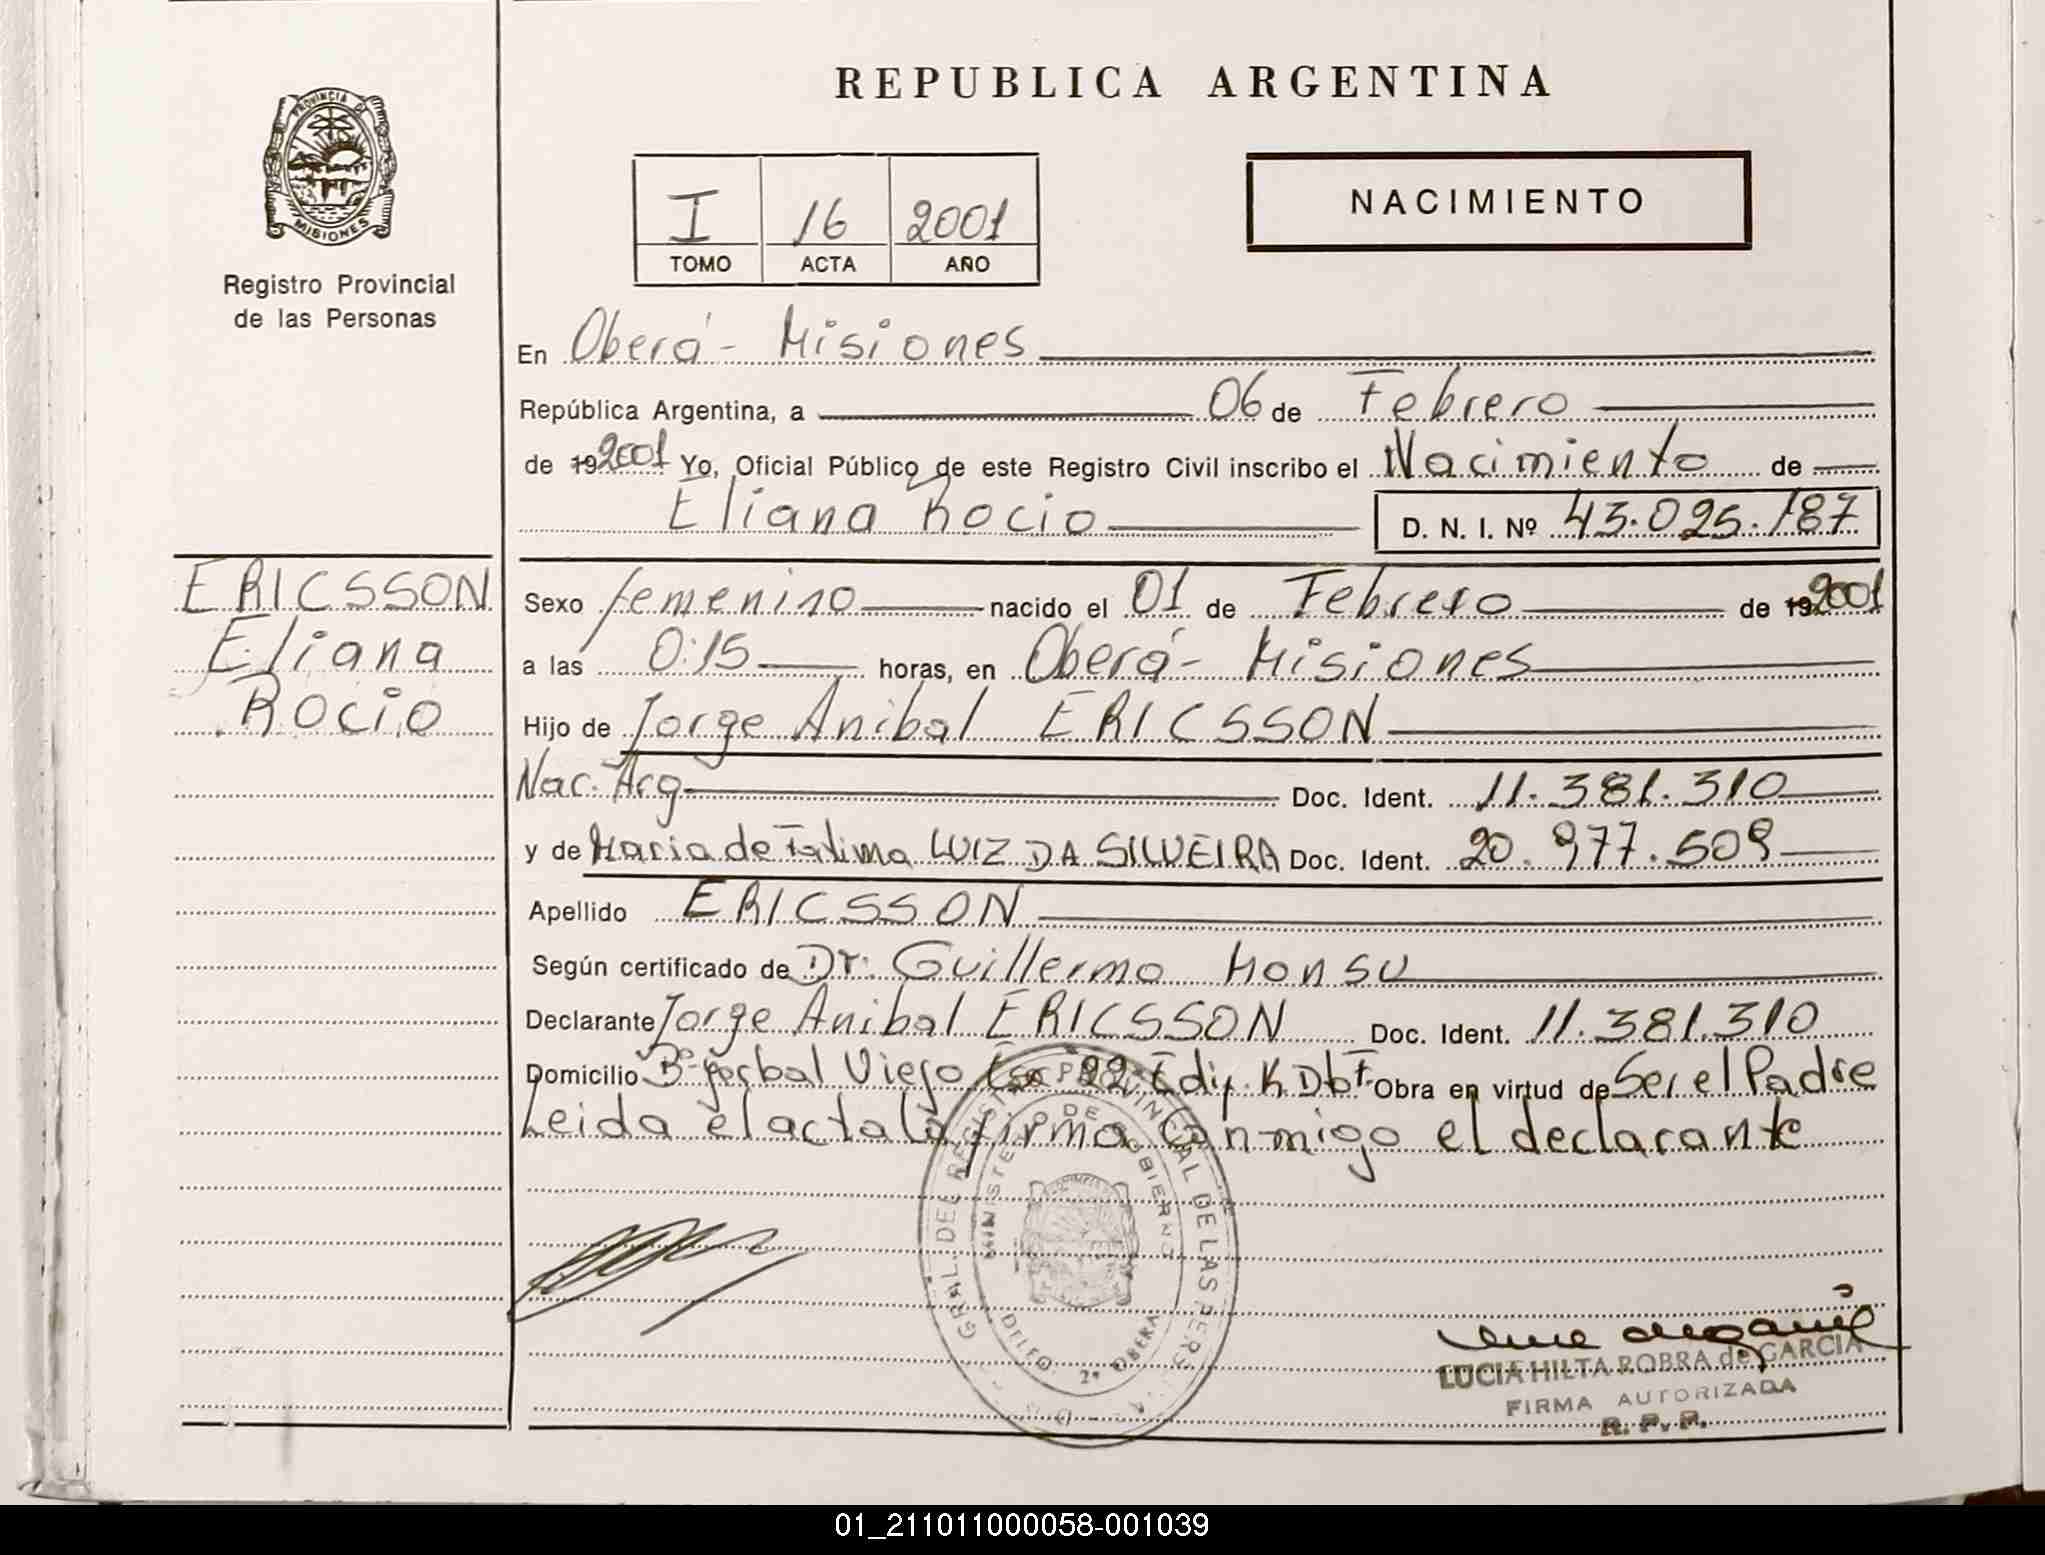 REPUBLICA ARGENTINA
PROVINCIA DE
MISIONES
Registro Provincial
de las Personas
I 16 2001
TOMO ACTA AÑO
NACIMIENTO
En Oberá - Misiones
República Argentina, a 06 de Febrero
de 19 2001 Yo, Oficial Público de este Registro Civil inscribo el Nacimiento de
Eliana Rocio D. N. I. Nº 43.025.187
ERICSSON
Eliana
Rocio
Sexo femenino nacido el 01 de Febrero de 19 2001
a las 0:15 horas, en Oberá - Misiones
Hijo de Jorge Anibal ERICSSON
Nac. Arg Doc. Ident. 11.381.310
y de Maria de Fatima LUIZ DA SILVEIRA Doc. Ident. 20.977.509
Apellido ERICSSON
Según certificado de Dr. Guillermo Monsu
Declarante Jorge Anibal ERICSSON Doc. Ident. 11.381.310
Domicilio Bº Yerbal Viejo Esc 22 Edif. K Dbt F Obra en virtud de Ser el Padre
Leida el acta la firma conmigo el declarante
GRAL. DEL REGISTRO PROVINCIAL DE LAS PERS
MINISTERIO DE GOBIERNO
2º OBERA
LUCIA HILTA ROBRA de GARCIA
FIRMA AUTORIZADA
R. P. P.
01_211011000058-001039